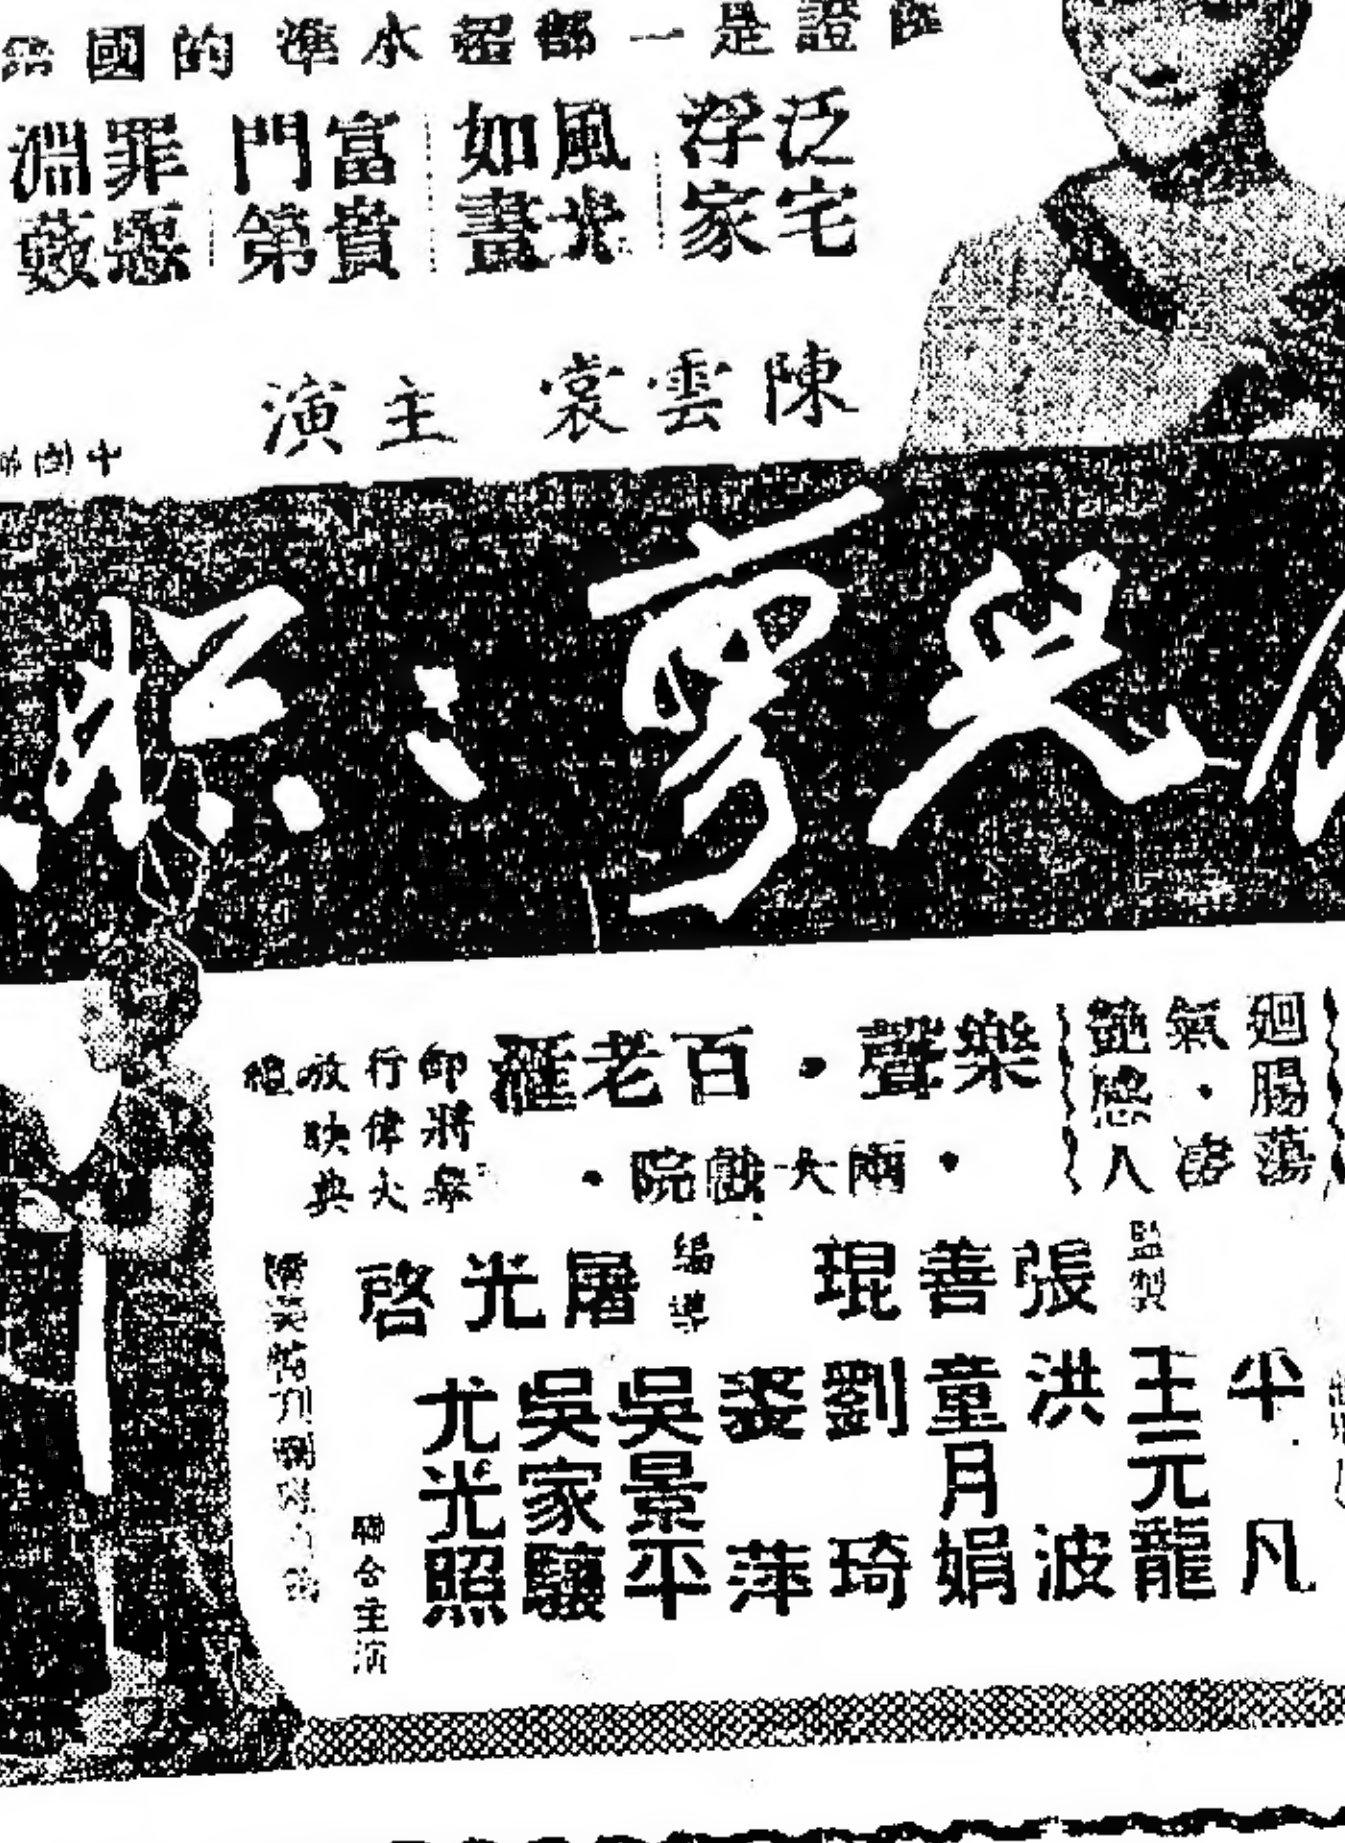 證是一部超水準的國語
泛宅浮家
風光如畫
富貴門第
罪惡淵藪
陳雲裳 主演
兒寧
迴腸蕩氣・
艷人
樂聲・百老滙
・兩大戲院・
即將舉行偉大放映典禮
監製 張善琨 編導 屠光啓
平凡
王元龍
洪波
童月娟
劉琦
裘萍
吳景平
吳家驤
尤光照
聯合主演